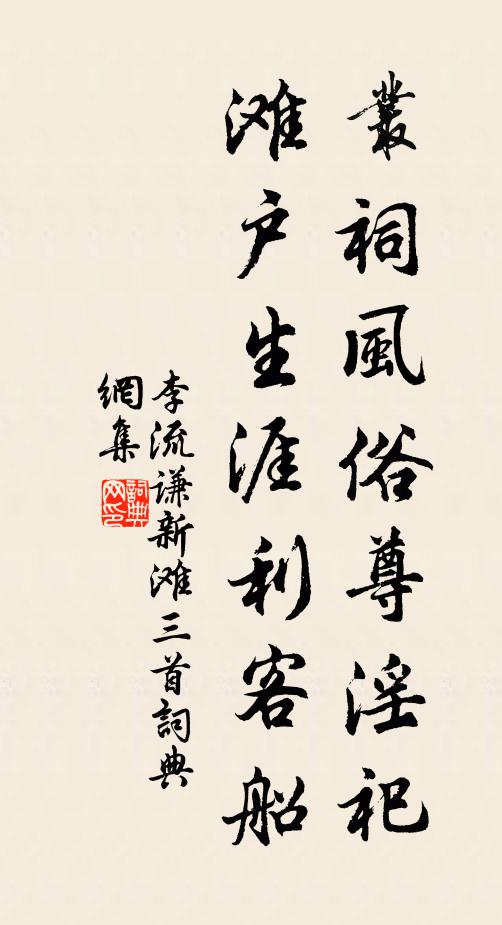 叢祠風俗尊淫祀
滩户生涯利客船
李流谦新滩三首詞典
網集
詞典
网印